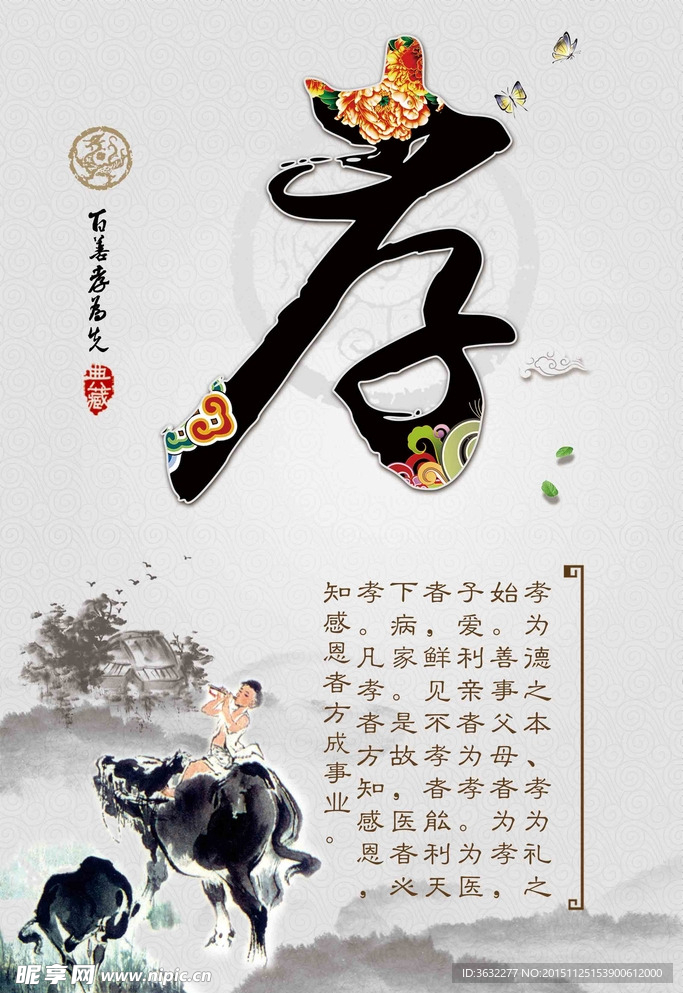 孝
百善孝为先
典藏
孝为德之本、孝为礼之
始。善事父母者为孝，
子爱利亲者为孝。为医
者，鲜见不孝者能利天
下病家。是故，医者必
孝。凡孝者方知感恩，
知感恩者方成事业。
昵享网 www.nipic.cn
ID:3632277 NO:20151125153900612000